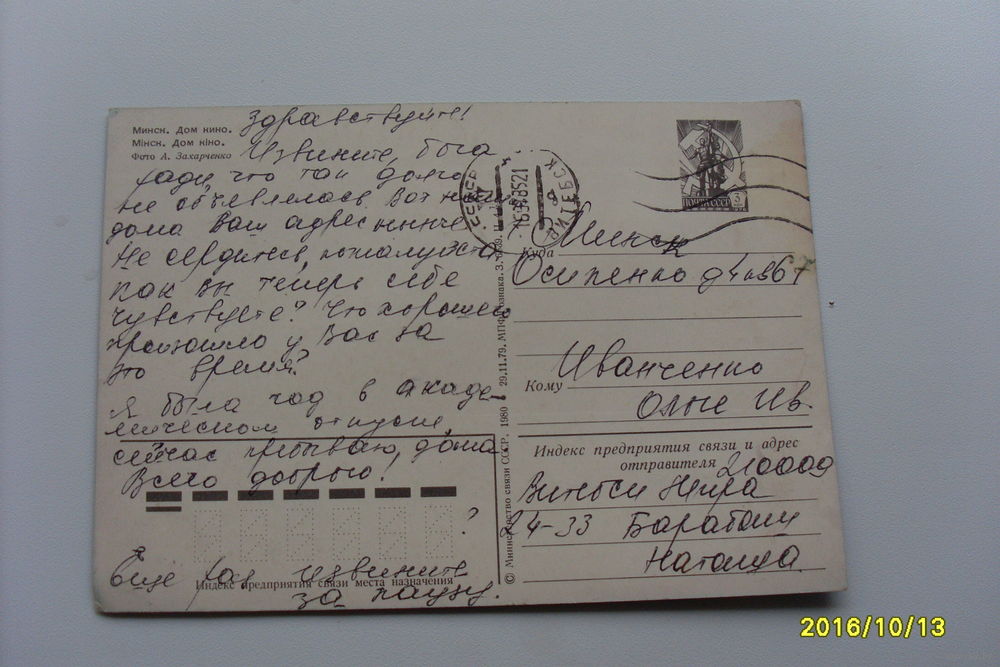 Минск. Дом кино.
Мінск. Дом кіно.
Фото А. Захарченко
Здравствуйте!
Извините, бога
ради, что так долго
не объявлялась. Вот
дома Ваш адрес нынче
Не сердитесь, пожалуйста
Как вы теперь себе
чувствуете? Что хорошего
произошло у Вас за
это время?
Я была год в акаде-
мическом отпуске
сейчас пребываю, дома
Всего доброго!
?
Еще раз извините
за паузу.
Индекс предприятия связи места назначения
© Министерство связи СССР. 1980 29.11.79. МПФ Гознака. З.
ПОЧТА СССР 3
СССР
ВИТЕБСК
Куда Минск
Осипенко д4 кв67
Кому Иванченко
Ольге Ив.
Индекс предприятия связи и адрес
отправителя 210009
24-33 Барабаш
Наталья
2016/10/13